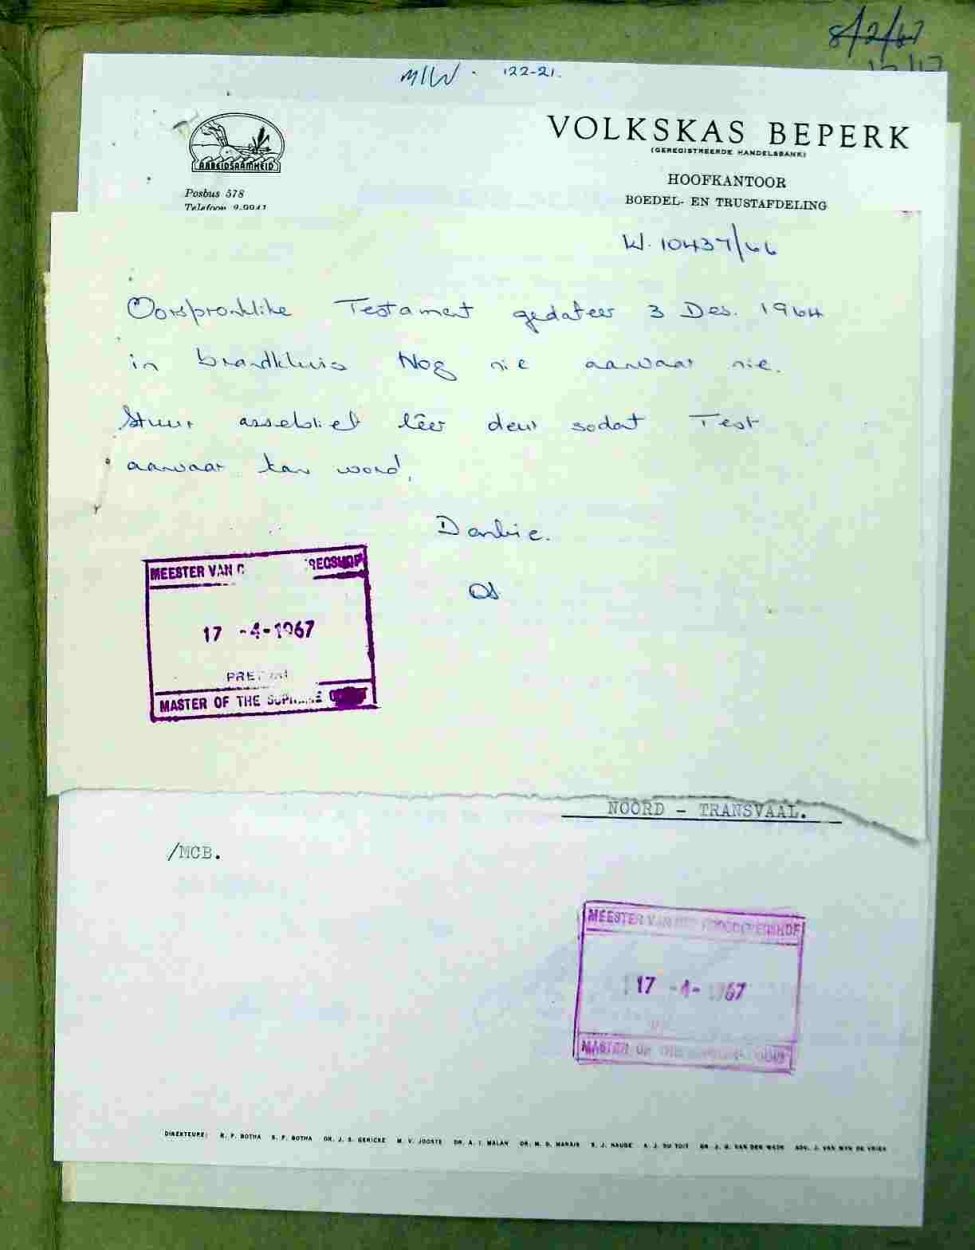 8/2/67
MIW. 122-21.
ARBEIDSAAMHEID
VOLKSKAS BEPERK
(GEREGISTREERDE HANDELSBANK)
HOOFKANTOOR
BOEDEL- EN TRUSTAFDELING
Posbus 578
Telefoon 9-9941
W. 10437/66
Oorspronklike Testament gedateer 3 Des. 1964
in brandkluis Nog nie aanvaar nie.
Stuur asseblief lêer deur sodat Test
aanvaar kan word.
Dankie.
MEESTER VAN
17 -4-1967
MASTER OF THE
NOORD - TRANSVAAL.
/MCB.
MEESTER VAN HOOGGEREGSHOF
17 -4- 1967
MASTER OF THE SUPREME COURT
DIREKTEURE: S. P. BOTHA DR. J. S. GERICKE M. V. JOOSTE DR. A. I. MALAN DR. M. D. MARAIS S. J. NAUDE A. J. DU TOIT